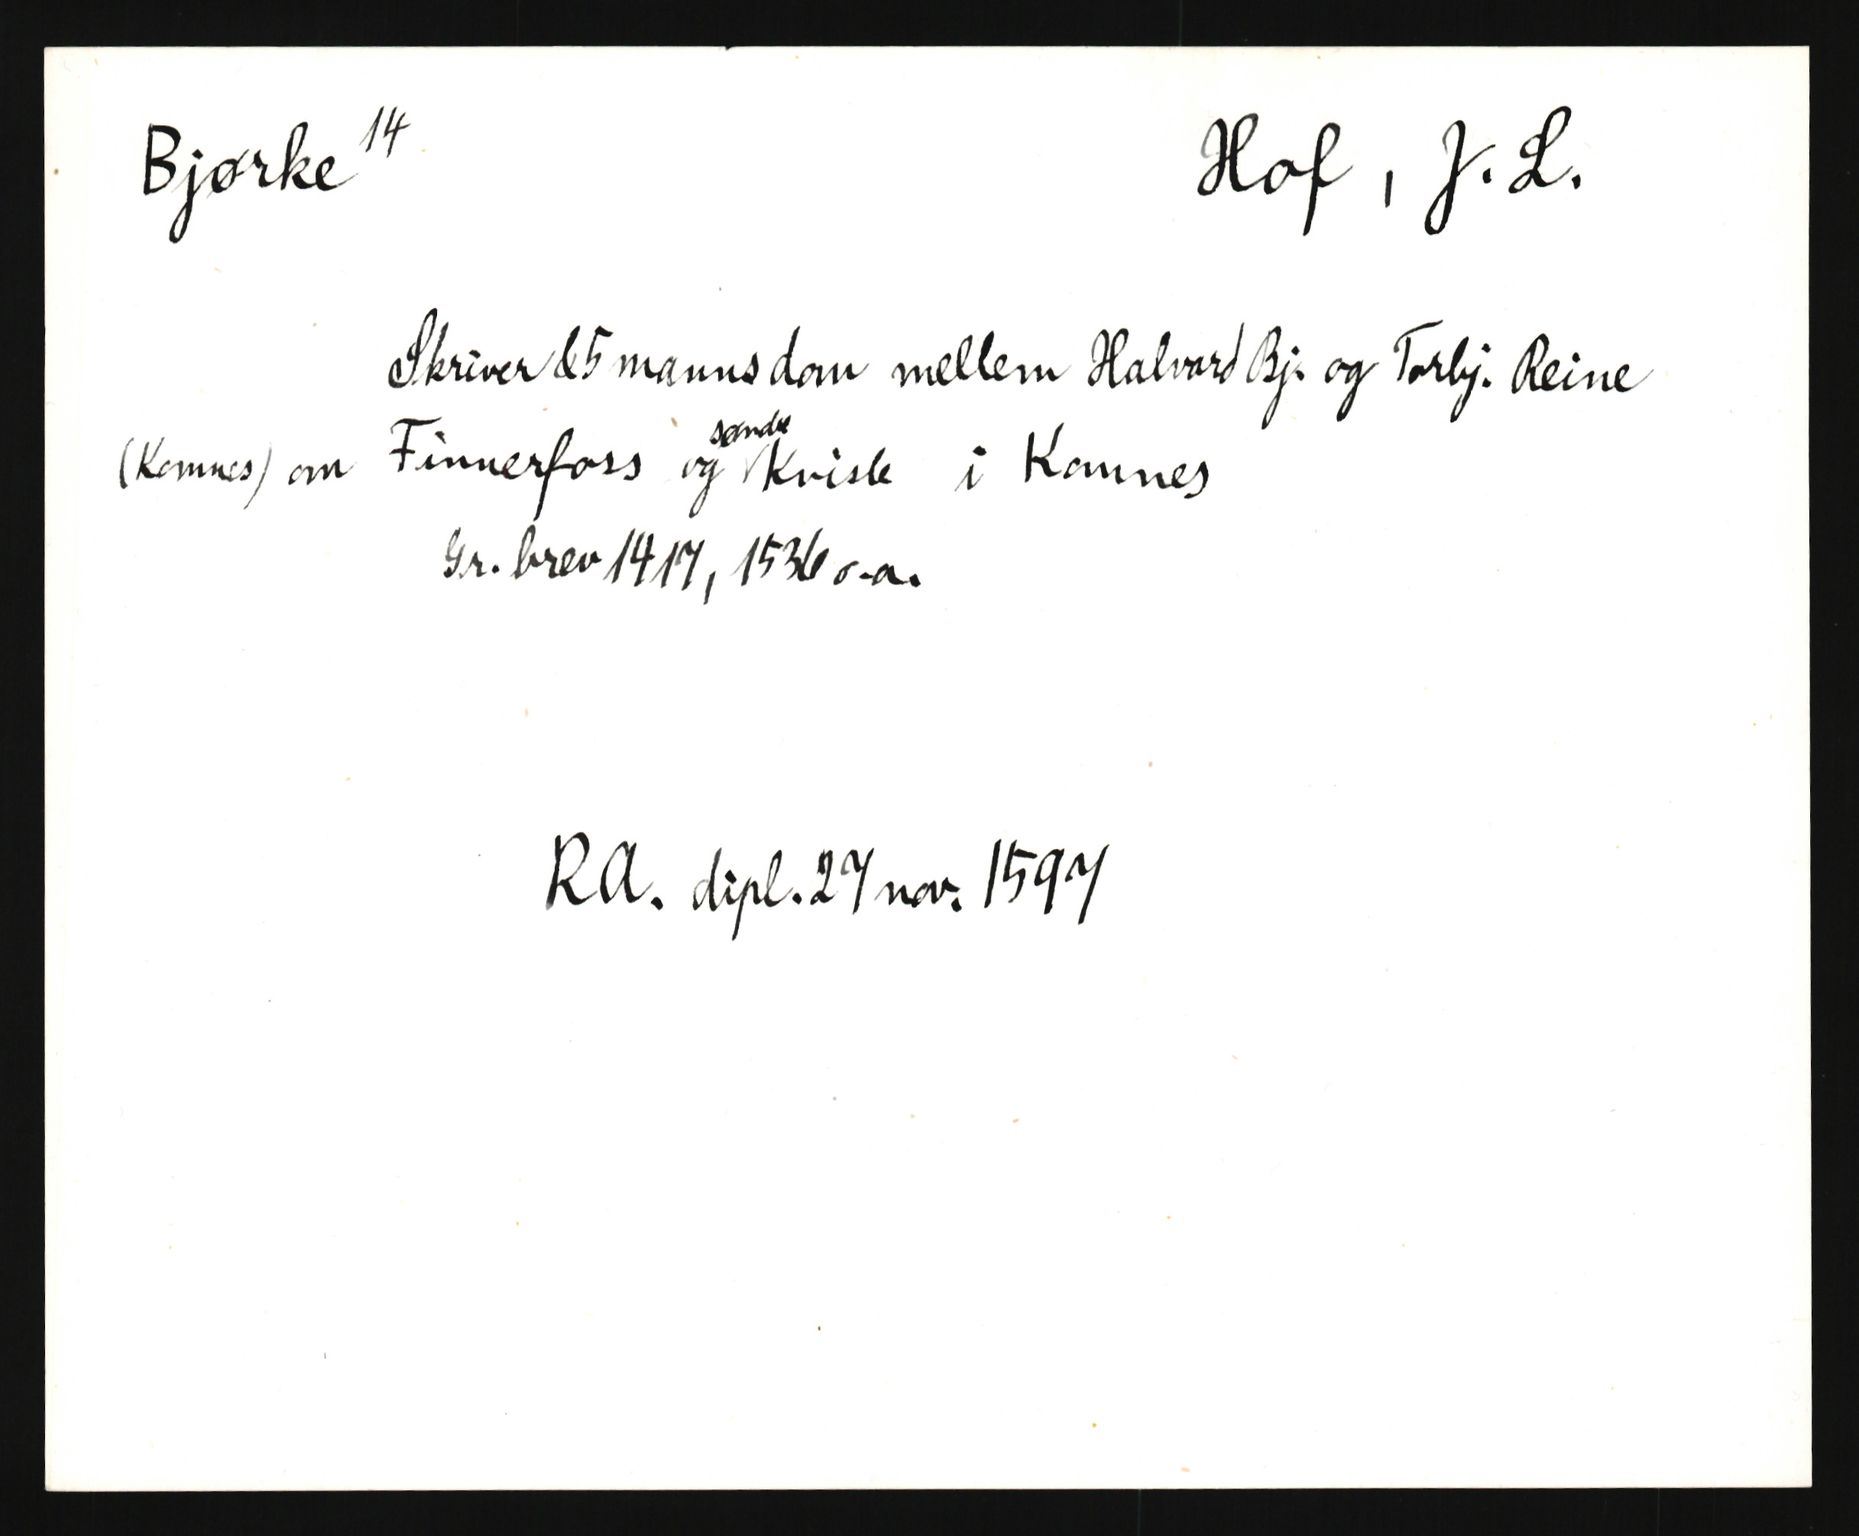 Bjørke 14
Hof, J. L.
Skriver & 5 manns dom mellem Halvard Bj. og Torbj. Reine
(Komnes) om Finnerfoss og søndre Kvisle i Komnes
Gr. brev 1417, 1536 o.a.
RA. dipl. 27 nov. 1597